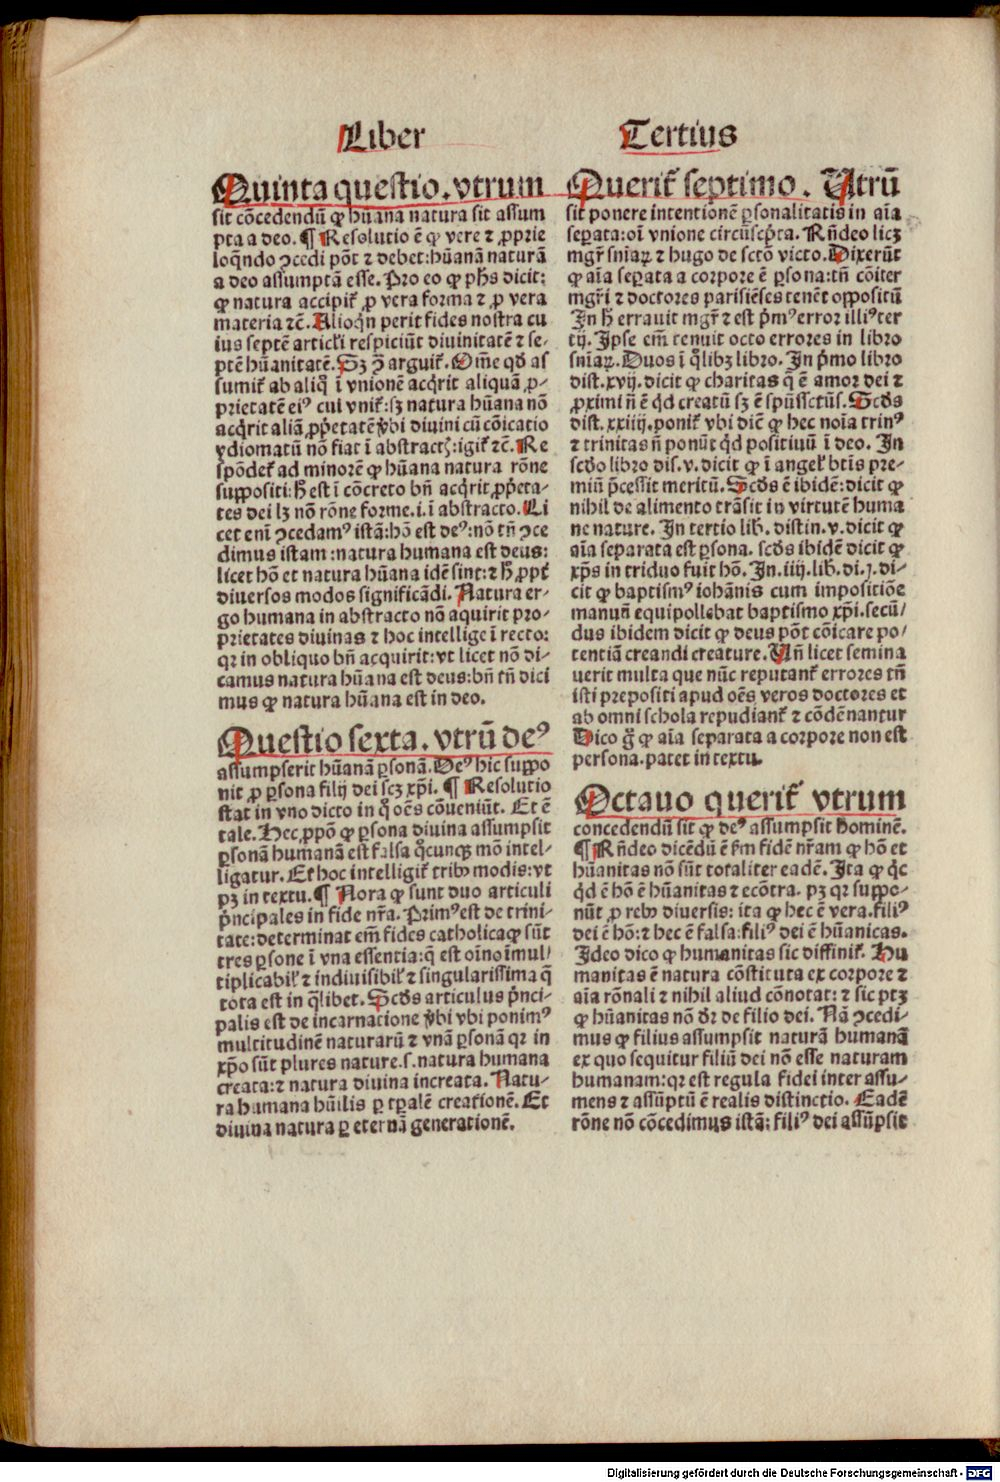 Liber Tertius
Quinta questio. vtrum
sit cōcedendū ꝙ hūana natura sit assum
pta a deo. ¶ Resolutio ē ꝙ vere ⁊ ꝓprie
loq̄ndo ꝯcedi pōt ⁊ debet: hūanā naturā
a deo assumptā esse. Pro eo ꝙ ph̄s dicit:
ꝙ natura accipit᷑ ꝓ vera forma ⁊ ꝓ vera
materia ⁊c̄. Alioq̇n perit fides nostra cu
ius septē articl̕i respiciūt diuinitatē ⁊ se-
ptē hūanitatē. Sꝫ ꝯ̄ arguit᷑. Om̄e qd̕ as
sumit᷑ ab aliq̊ ī vnionē acq̇rit aliquā ꝓ-
prietatē eiꝰ cui vnit᷑: sꝫ natura hūana nō
acq̇rit aliā ꝓp̕etatē v̕bi diuini cū cōicatio
ydiomatū nō fiat ī abstract̕: igit᷑ ⁊c̄. Re
spōdet᷑ ad minorē ꝙ hūana natura rōne
suppositi: h̄ est ī cōcreto bn̄ acq̇rit ꝓp̕eta-
tes dei lꝫ nō rōne forme .i. ī abstracto. Li
cet em̄ ꝯcedamꝰ istā: hō est deꝰ: nō tn̄ ꝯce
dimus istam: natura humana est deus:
licet hō et natura hūana idē sint: ⁊ h̄ ꝓpt̕
diuersos modos significādi. Natura er-
go humana in abstracto nō aquirit pro-
prietates diuinas ⁊ hoc intellige ī recto:
qꝛ in obliquo bn̄ acquirit: vt licet nō di-
camus natura hūana est deus: bn̄ tn̄ dici
mus ꝙ natura hūana est in deo.
Questio sexta. vtrū deꝰ
assumpserit hūanā ꝑsonā. Deꝰ hic suppo
nit ꝓ ꝑsona filij dei scꝫ xp̄i. ¶ Resolutio
stat in vno dicto in q̊ oēs cōueniūt. Et ē
tale. Hec ꝓpō ꝙ ꝑsona diuina assumpsit
ꝑsonā humanā est falsa q̊cunqꝫ mō intel-
ligatur. Et hoc intelligit᷑ tribꝰ modis: vt
pꝫ in textu. ¶ Nota ꝙ sunt duo articuli
p̕ncipales in fide nr̄a. Primꝰ est de trini-
tate: determinat em̄ fides catholica ꝙ sūt
tres ꝑsone ī vna essentia: q̄ est oīno īmul/
tiplicabil̕ ⁊ indiuisibil̕ ⁊ singularissima q̄
tota est in q̄libet. Scd̕s articulus p̕nci-
palis est de incarnatione v̕bi vbi ponimꝰ
multitudinē naturarū ⁊ vnā ꝑsonā qꝛ in
xp̄o sūt plures nature .s. natura humana
creata: ⁊ natura diuina increata. Natu-
ra humana hūilis ꝑ tꝑalē creationē. Et
diuina natura ꝑ eternā generationē.
Querit᷑ septimo. Vtrū
sit ponere intentionē ꝑsonalitatis in aīa
seꝑata: oī vnione circūsep̕ta. Rn̄deo licꝫ
mgr̄ sniaꝝ ⁊ hugo de scto victo. Dixerūt
ꝙ aīa seꝑata a corpore ē ꝑsona: tn̄ cōiter
mgr̄i ⁊ doctores parisiēses tenēt oppositū
In h̄ errauit mgr̄ ⁊ est p̕mꝰ error illiꝰ ter
tij. Ipse em̄ tenuit octo errores in libro
sniaꝝ. Duos ī q̊libꝫ libro. In p̕mo libro
dist. xvij. dicit ꝙ charitas q̄ ē amor dei ⁊
ꝓximi n̄ ē qd̕ creatū sꝫ ē spūssctūs. Scd̕s
dist. xxiiij. ponit᷑ vbi dic̄ ꝙ hec noīa trinꝰ
⁊ trinitas n̄ ponūt qd̕ positiuū ī deo. In
scd̕o libro dis. v. dicit ꝙ ī angel̕ btīs pre-
miū p̄cessit meritū. Scd̕s ē ibidē: dicit ꝙ
nihil de alimento trāsit in virtutē huma
ne nature. In tertio lib̕. distin. v. dicit ꝙ
aīa separata est ꝑsona. scd̕s ibidē dicit ꝙ
xp̄s in triduo fuit hō. In .iiij. lib̕. di. j. di-
cit ꝙ baptismꝰ iohānis cum impositiōe
manuū equipollebat baptismo xp̄i. secū/
dus ibidem dicit ꝙ deus pōt cōicare po/
tentiā creandi creature. Vn̄ licet semina
uerit multa que nūc reputant᷑ errores tn̄
isti prepositi apud oēs veros doctores et
ab omni schola repudiant᷑ ⁊ cōdēnantur
Dico g̊ ꝙ aīa separata a corpore non est
persona. patet in textu.
Octauo querit᷑ vtrum
concedendū sit ꝙ deꝰ assumpsit hominē.
¶ Rn̄deo dicēdū ē ẜm fidē nr̄am ꝙ hō et
hūanitas nō sūt totaliter eadē. Ita ꝙ q̇cq̇d
q̇d ē hō ē hūanitas ⁊ ecōtra. pꝫ qꝛ suppo-
nūt ꝓ rebꝰ diuersis: ita ꝙ hec ē vera. filiꝰ
dei ē hō: ⁊ hec ē falsa: filiꝰ dei ē hūanitas.
Ideo dico ꝙ humanitas sic diffinit᷑. Hu
manitas ē natura cōstituta ex corpore ⁊
aīa rōnali ⁊ nihil aliud cōnotat: ⁊ sic ptꝫ
ꝙ hūanitas nō dr̄ de filio dei. Nā ꝯcedi-
mus ꝙ filius assumpsit naturā humanā
ex quo sequitur filiū dei nō esse naturam
humanam: qꝛ est regula fidei inter assu-
mens ⁊ assūptū ē realis distinctio. Eadē
rōne nō cōcedimus istā: filiꝰ dei assūpsit
Digitalisierung gefördert durch die Deutsche Forschungsgemeinschaft - DFG